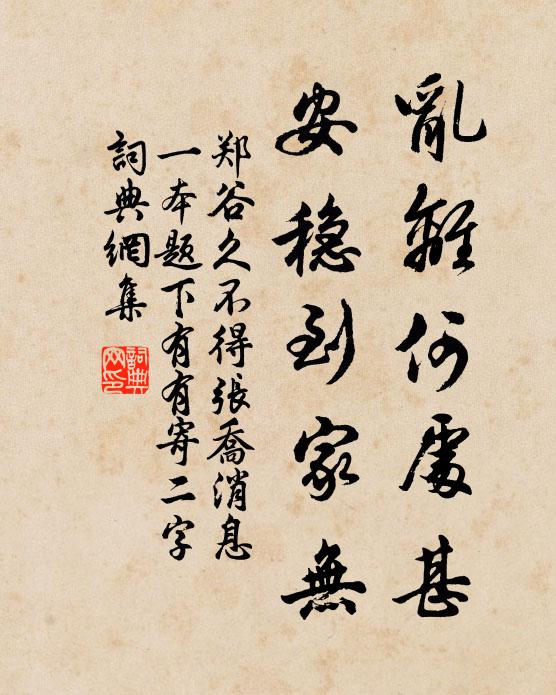 亂離何處甚
安穩到家無
郑谷久不得張喬消息
一本題下有有寄二字
詞典網集
詞典网印